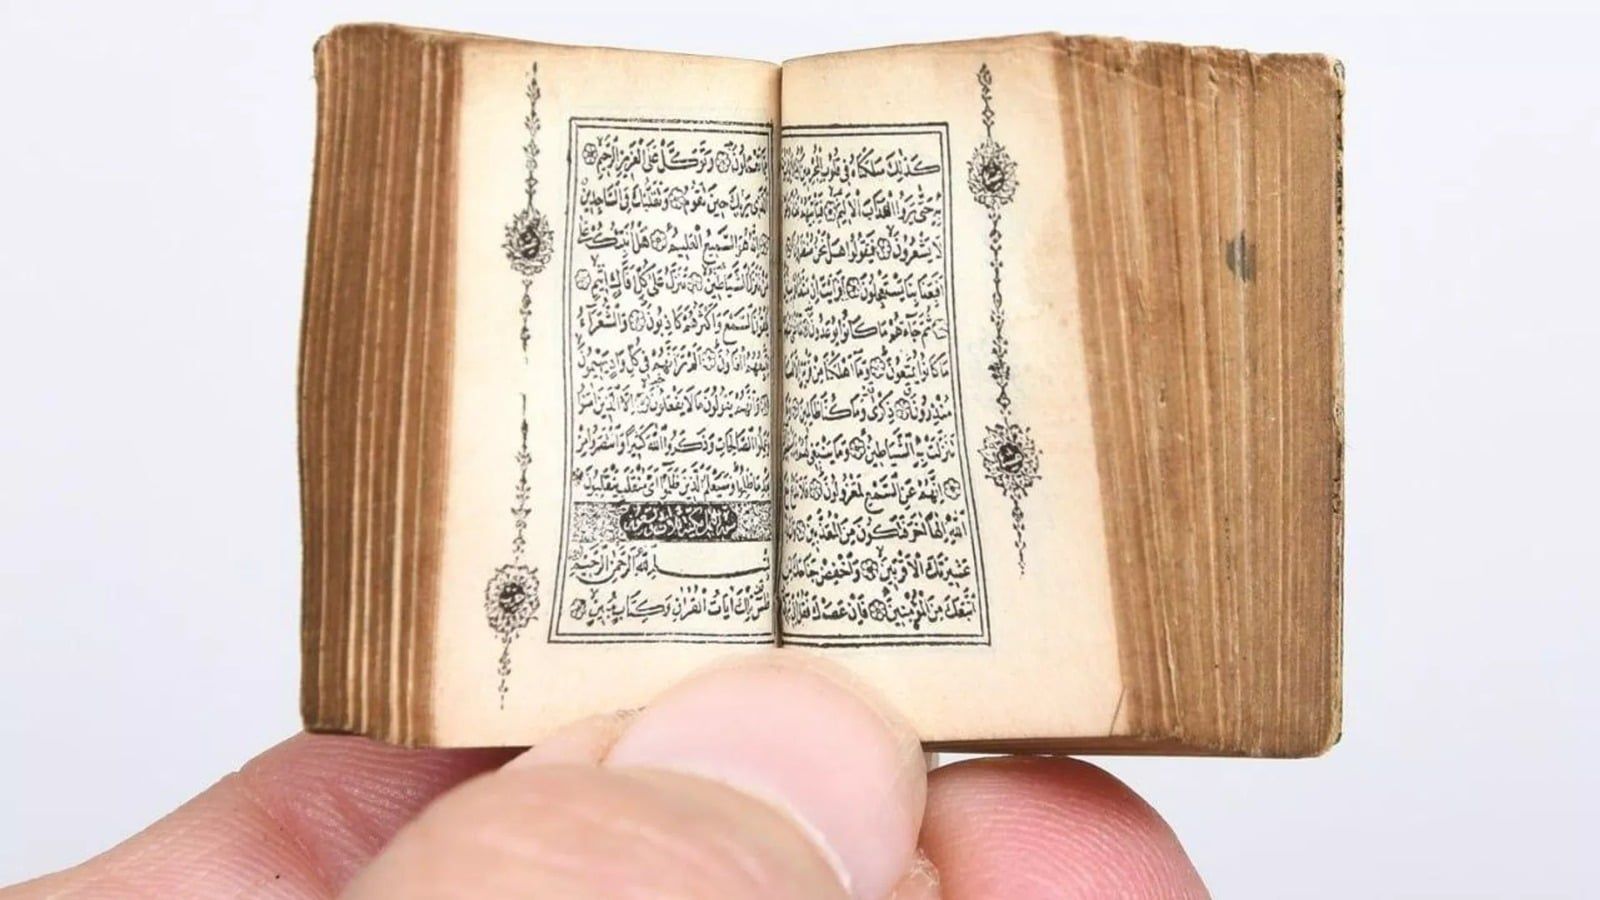 كَذٰلِكَ سَلَكْنَاهُ فِي قُلُوبِ الْمُجْرِمِينَ
حَتّٰى يَرَوُا الْعَذَابَ الْاَلِيمَ فَيَأْتِيَهُمْ
لَا يَشْعُرُونَ فَيَقُولُوا هَلْ نَحْنُ
اَفَبِعَذَابِنَا يَسْتَعْجِلُونَ اَفَرَاَيْتَ اِنْ
ثُمَّ جَاءَهُمْ مَا كَانُوا يُوعَدُونَ
مَا كَانُوا يُمَتَّعُونَ وَمَا اَهْلَكْنَا مِنْ قَرْيَةٍ
مُنْذِرُونَ ذِكْرٰى وَمَا كُنَّا ظَالِمِينَ
تَنَزَّلَتْ بِهِ الشَّيَاطِينُ وَمَا يَنْبَغِي لَهُمْ
اِنَّهُمْ عَنِ السَّمْعِ لَمَعْزُولُونَ فَلَا تَدْعُ
اللّٰهِ اِلٰهًا اٰخَرَ فَتَكُونَ مِنَ الْمُعَذَّبِينَ
عَشِيرَتَكَ الْاَقْرَبِينَ وَاخْفِضْ جَنَاحَكَ
اتَّبَعَكَ مِنَ الْمُؤْمِنِينَ فَاِنْ عَصَوْكَ فَقُلْ اِنِّي
تَعْمَلُونَ وَتَوَكَّلْ عَلَى الْعَزِيزِ الرَّحِيمِ
الَّذِي يَرٰيكَ حِينَ تَقُومُ وَتَقَلُّبَكَ فِي السَّاجِدِينَ
اِنَّهُ هُوَ السَّمِيعُ الْعَلِيمُ هَلْ اُنَبِّئُكُمْ عَلٰى
مَنْ تَنَزَّلُ الشَّيَاطِينُ تَنَزَّلُ عَلٰى كُلِّ اَفَّاكٍ اَثِيمٍ
يُلْقُونَ السَّمْعَ وَاَكْثَرُهُمْ كَاذِبُونَ وَالشُّعَرَاءُ
يَتَّبِعُهُمُ الْغَاوُونَ اَلَمْ تَرَ اَنَّهُمْ فِي كُلِّ وَادٍ يَهِيمُونَ
وَاَنَّهُمْ يَقُولُونَ مَا لَا يَفْعَلُونَ اِلَّا الَّذِينَ اٰمَنُوا
وَعَمِلُوا الصَّالِحَاتِ وَذَكَرُوا اللّٰهَ كَثِيرًا وَانْتَصَرُوا مِنْ
بَعْدِ مَا ظُلِمُوا وَسَيَعْلَمُ الَّذِينَ ظَلَمُوا اَيَّ مُنْقَلَبٍ يَنْقَلِبُونَ
سورة النمل مكية
بِسْمِ اللّٰهِ الرَّحْمٰنِ الرَّحِيمِ
طٰسٓ تِلْكَ اٰيَاتُ الْقُرْاٰنِ وَكِتَابٍ مُبِينٍ